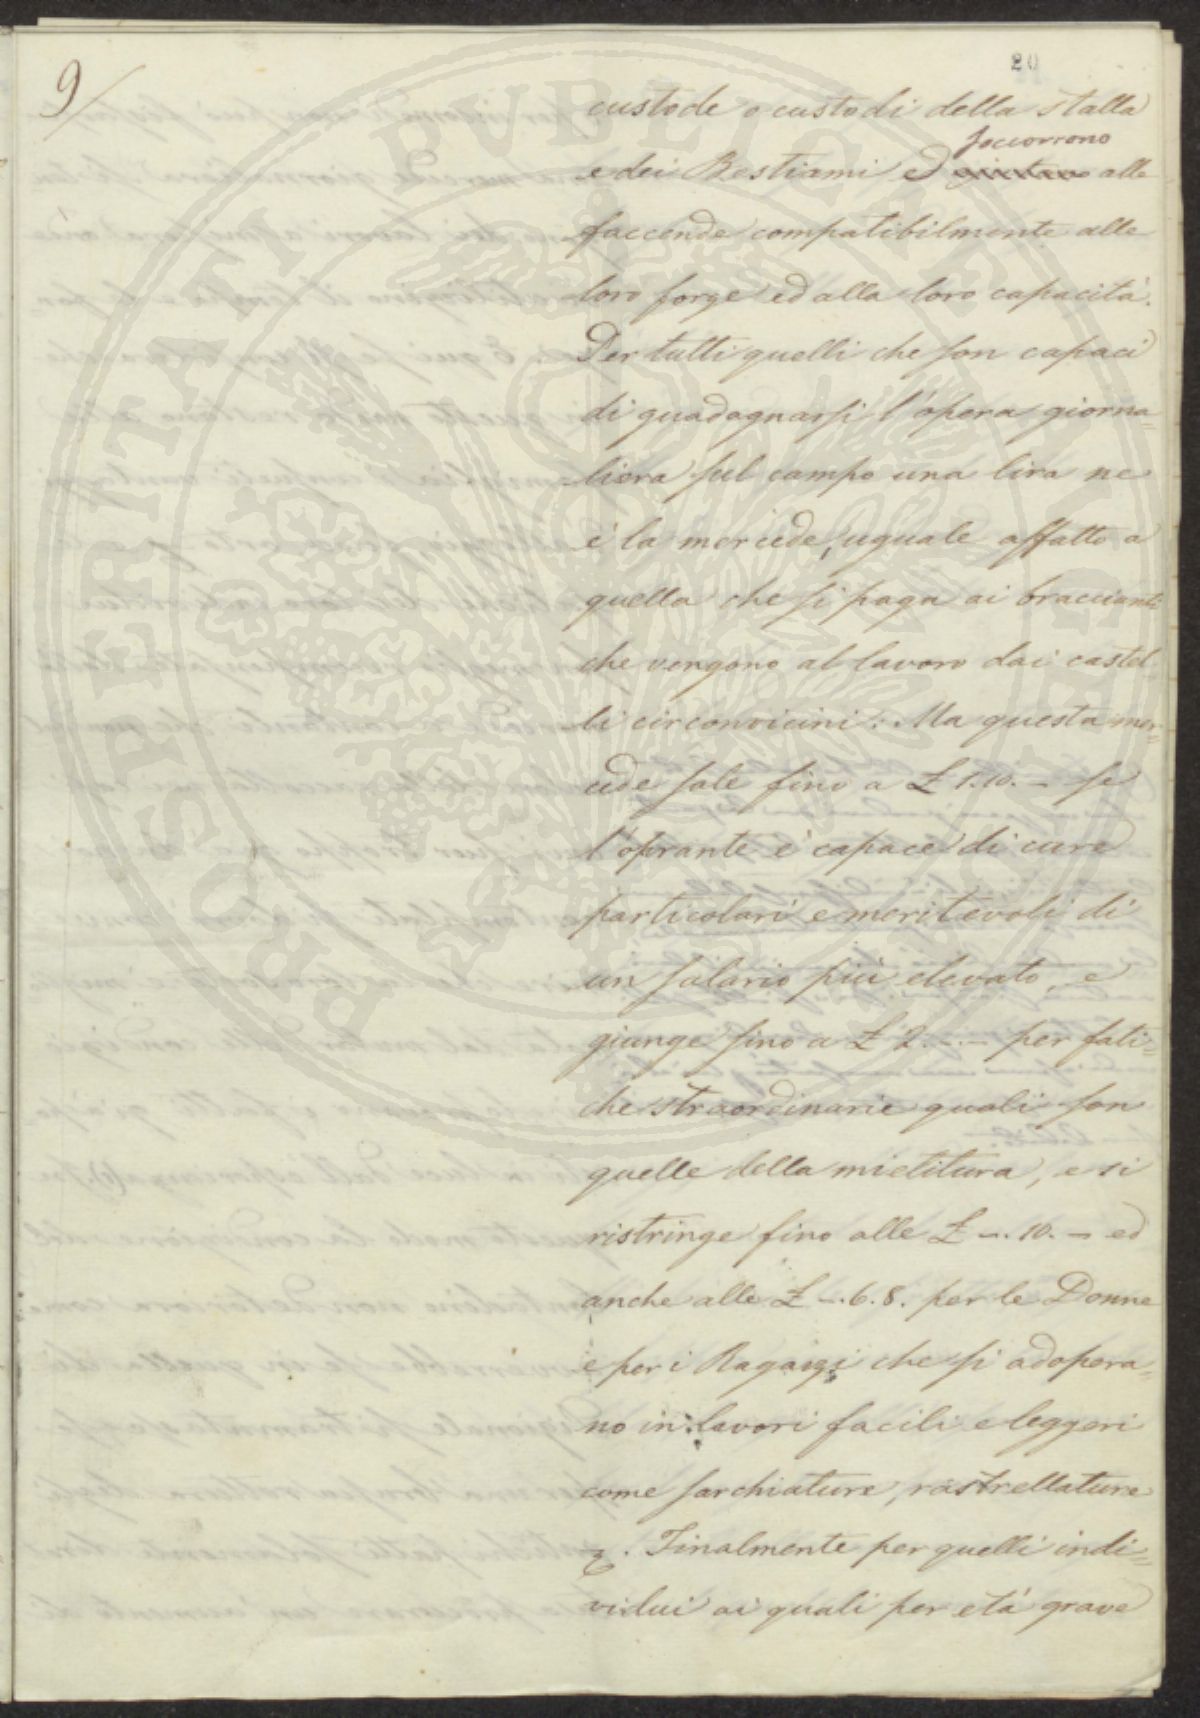 9/
20
custode o custodi della stalla
soccorrono
e dei Bestiami ed aiutano alle
faccende compatibilmente alle
loro forze ed alla loro capacità.
Per tutti quelli che son capaci
di guadagnarsi l'opera giorna=
liera sul campo una lira ne
è la mercede, uguale affatto a
quella che si paga ai braccianti
che vengono al lavoro dai castel=
li circonvicini: Ma questa mer=
cede sale fino a £ 1.10.— se
l'oprante è capace di cure
particolari e meritevoli di
un salario più elevato, e
giunge fino a £ 2.-.- per fati=
che straordinarie quali son
quelle della mietitura, e si
ristringe fino alle £ -.10.- ed
anche alle £ -.6.8. per le Donne
e per i Ragazzi che si adopera=
no in lavori facili e leggeri
come sarchiature, rastrellature
&. Finalmente per quelli indi=
vidui ai quali per età grave
PROSPERITATI PUBLICAE AUGENDAE